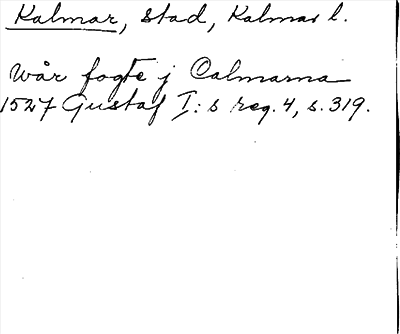 Kalmar, stad, Kalmar l.
Wår fogte j Calmarna
1527 Gustaf I:s reg. 4, s. 319.